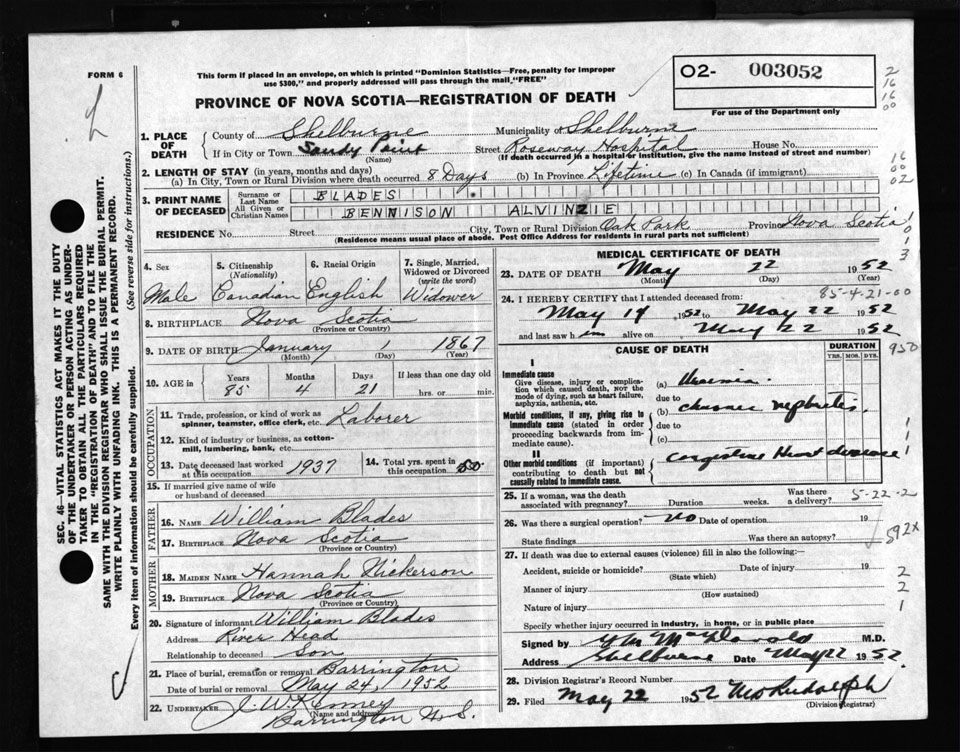 FORM 6
This form if placed in an envelope, on which is printed "Dominion Statistics—Free, penalty for improper
use $300," and properly addressed will pass through the mail "FREE"
PROVINCE OF NOVA SCOTIA—REGISTRATION OF DEATH
O2- 003052
For use of the Department only
2
16
16
00
1. PLACE OF DEATH
County of Shelburne Municipality of Shelburne
If in City or Town Sandy Point Street Roseway Hospital House No.
(Name) (If death occurred in a hospital or institution, give the name instead of street and number)
16
00
02
2. LENGTH OF STAY (in years, months and days)
(a) In City, Town or Rural Division where death occurred 8 Days (b) In Province Lifetime (c) In Canada (if immigrant)
3. PRINT NAME OF DECEASED
Surname or Last Name BLADES
All Given or Christian Names BENNISON ALVINZIE
RESIDENCE No. Street City, Town or Rural Division Oak Park Province Nova Scotia
(Residence means usual place of abode. Post Office Address for residents in rural parts not sufficient)
1
0
1
3
SEC. 46—VITAL STATISTICS ACT MAKES IT THE DUTY
OF THE UNDERTAKER OR PERSON ACTING AS UNDER-
TAKER TO OBTAIN ALL THE PARTICULARS REQUIRED
IN THE "REGISTRATION OF DEATH" AND TO FILE THE
SAME WITH THE DIVISION REGISTRAR WHO SHALL ISSUE THE BURIAL PERMIT.
WRITE PLAINLY WITH UNFADING INK. THIS IS A PERMANENT RECORD.
Every item of information should be carefully supplied. (See reverse side for instructions.)
4. Sex Male
5. Citizenship (Nationality) Canadian
6. Racial Origin English
7. Single, Married, Widowed or Divorced (write the word) Widower
8. BIRTHPLACE Nova Scotia
(Province or Country)
9. DATE OF BIRTH January 1 1867
(Month) (Day) (Year)
10. AGE in Years Months Days If less than one day old
85 4 21 hrs. or min.
OCCUPATION
11. Trade, profession, or kind of work as
spinner, teamster, office clerk, etc. Laborer
12. Kind of industry or business, as cotton-
mill, lumbering, bank, etc.
13. Date deceased last worked
at this occupation 1937
14. Total yrs. spent in
this occupation 50
15. If married give name of wife
or husband of deceased
FATHER
16. NAME William Blades
17. BIRTHPLACE Nova Scotia
(Province or Country)
MOTHER
18. MAIDEN NAME Hannah Nickerson
19. BIRTHPLACE Nova Scotia
(Province or Country)
20. Signature of informant William Blades
Address River Head
Relationship to deceased Son
21. Place of burial, cremation or removal Barrington
Date of burial or removal May 24, 1952
22. UNDERTAKER J. W. Kenney
(Name and address)
Barrington N.S.
MEDICAL CERTIFICATE OF DEATH
23. DATE OF DEATH May 22 1952
(Month) (Day) (Year)
85-4-21-00
24. I HEREBY CERTIFY that I attended deceased from:
May 14 1952 to May 22 1952
and last saw him alive on May 22 1952
950
CAUSE OF DEATH
DURATION
YRS. MOS. DYS.
I
Immediate cause
Give disease, injury or complica-
tion which caused death, not the
mode of dying, such as heart failure,
asphyxia, asthenia, etc.
(a) Uraemia.
due to
Morbid conditions, if any, giving rise to
immediate cause (stated in order
proceeding backwards from im-
mediate cause).
(b) chronic nephritis.
due to
(c)
II
Other morbid conditions (if important)
contributing to death but not
causally related to immediate cause.
Congestive Heart disease
1
1
1
25. If a woman, was the death
associated with pregnancy? Duration weeks. Was there a delivery?
5-22-2
26. Was there a surgical operation? no Date of operation 19
State findings Was there an autopsy?
592X
27. If death was due to external causes (violence) fill in also the following:—
Accident, suicide or homicide? Date of injury 19
(State which)
Manner of injury
(How sustained)
Nature of injury
2
2
1
Specify whether injury occurred in industry, in home, or in public place
Signed by M.D.
Address Shelburne Date May 22 1952.
28. Division Registrar's Record Number
29. Filed May 22 1952 Rudolph
(Division Registrar)